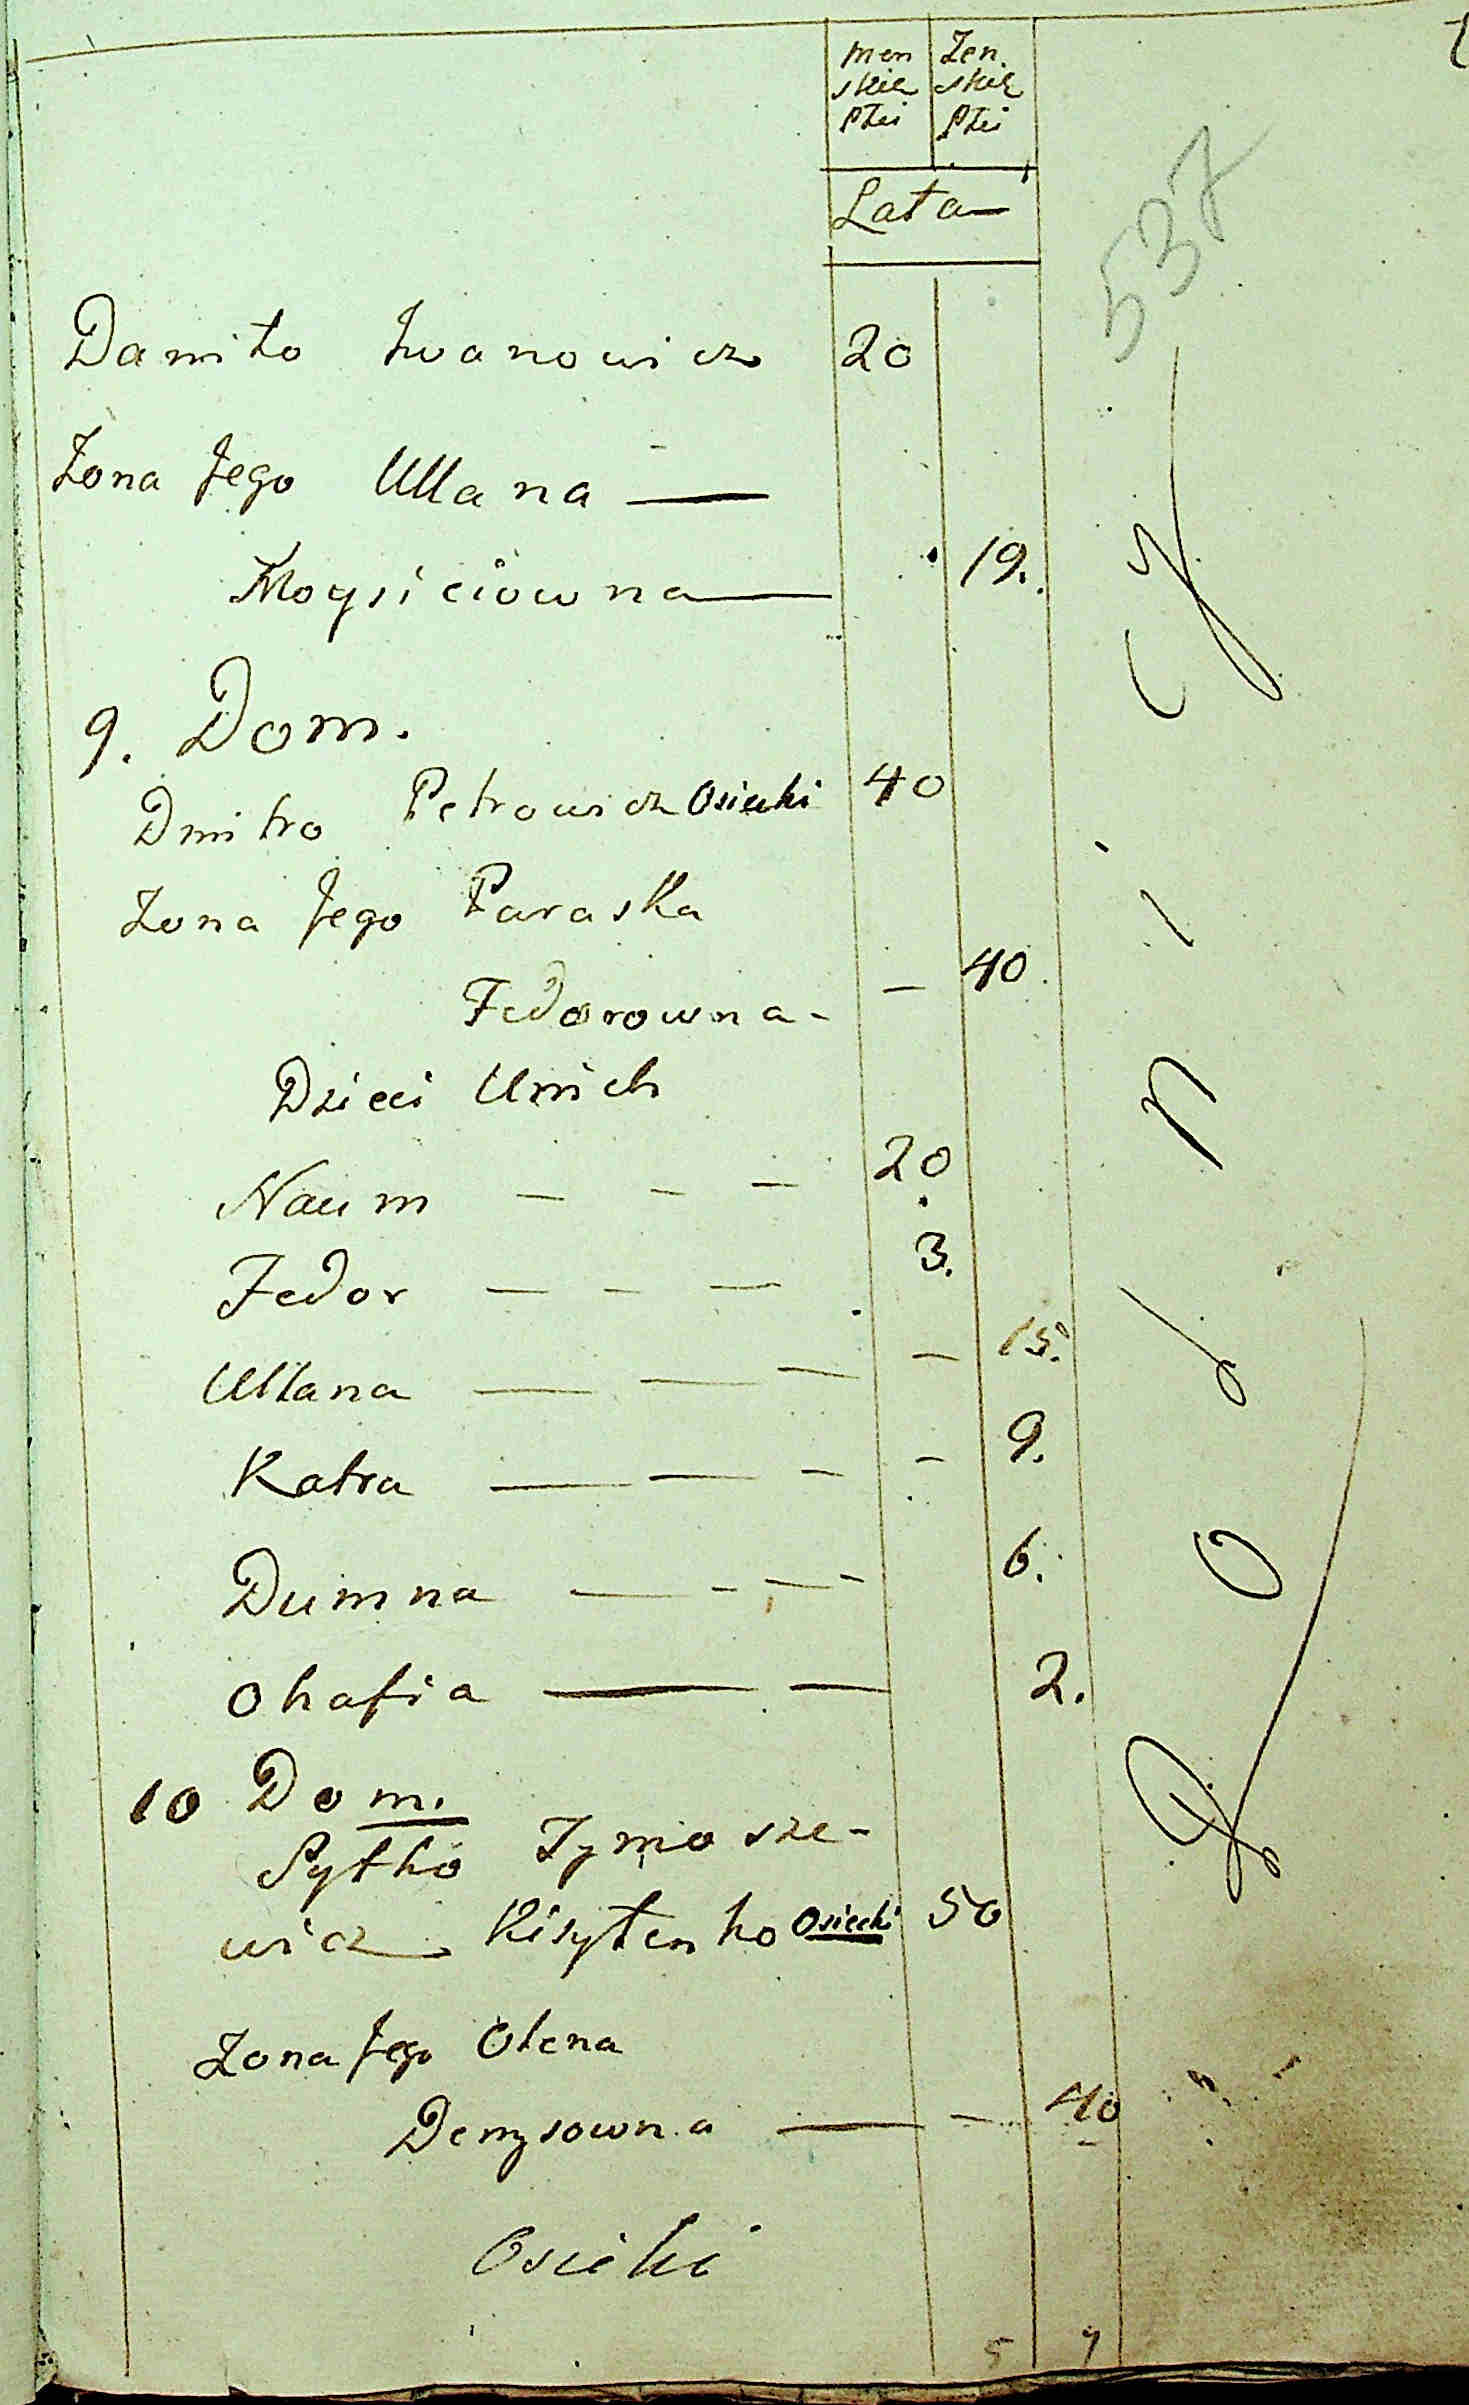 Men
skiey
Płci
Żen.
skiey
Płci
Lata
537
Daniło Iwanowicz 20
Żona Jego Ullana —
Moysiciowna — 19.
9. Dom.
Dmitro Petrowicz Osiecki 40
Żona Jego Paraska
Fedorowna - — 40.
Dzieci Unich
Naum — — — 20
Fedor — — — 3.
Ullana — — — — 15.
Katra — — — — 9.
Dumna — - — - 6.
Ohafia — — 2.
10 Dom.
Tymosze-
wicz Osiecki 50
Żona Jego Olena
Denysowna — — 40
Osiecki
5 7